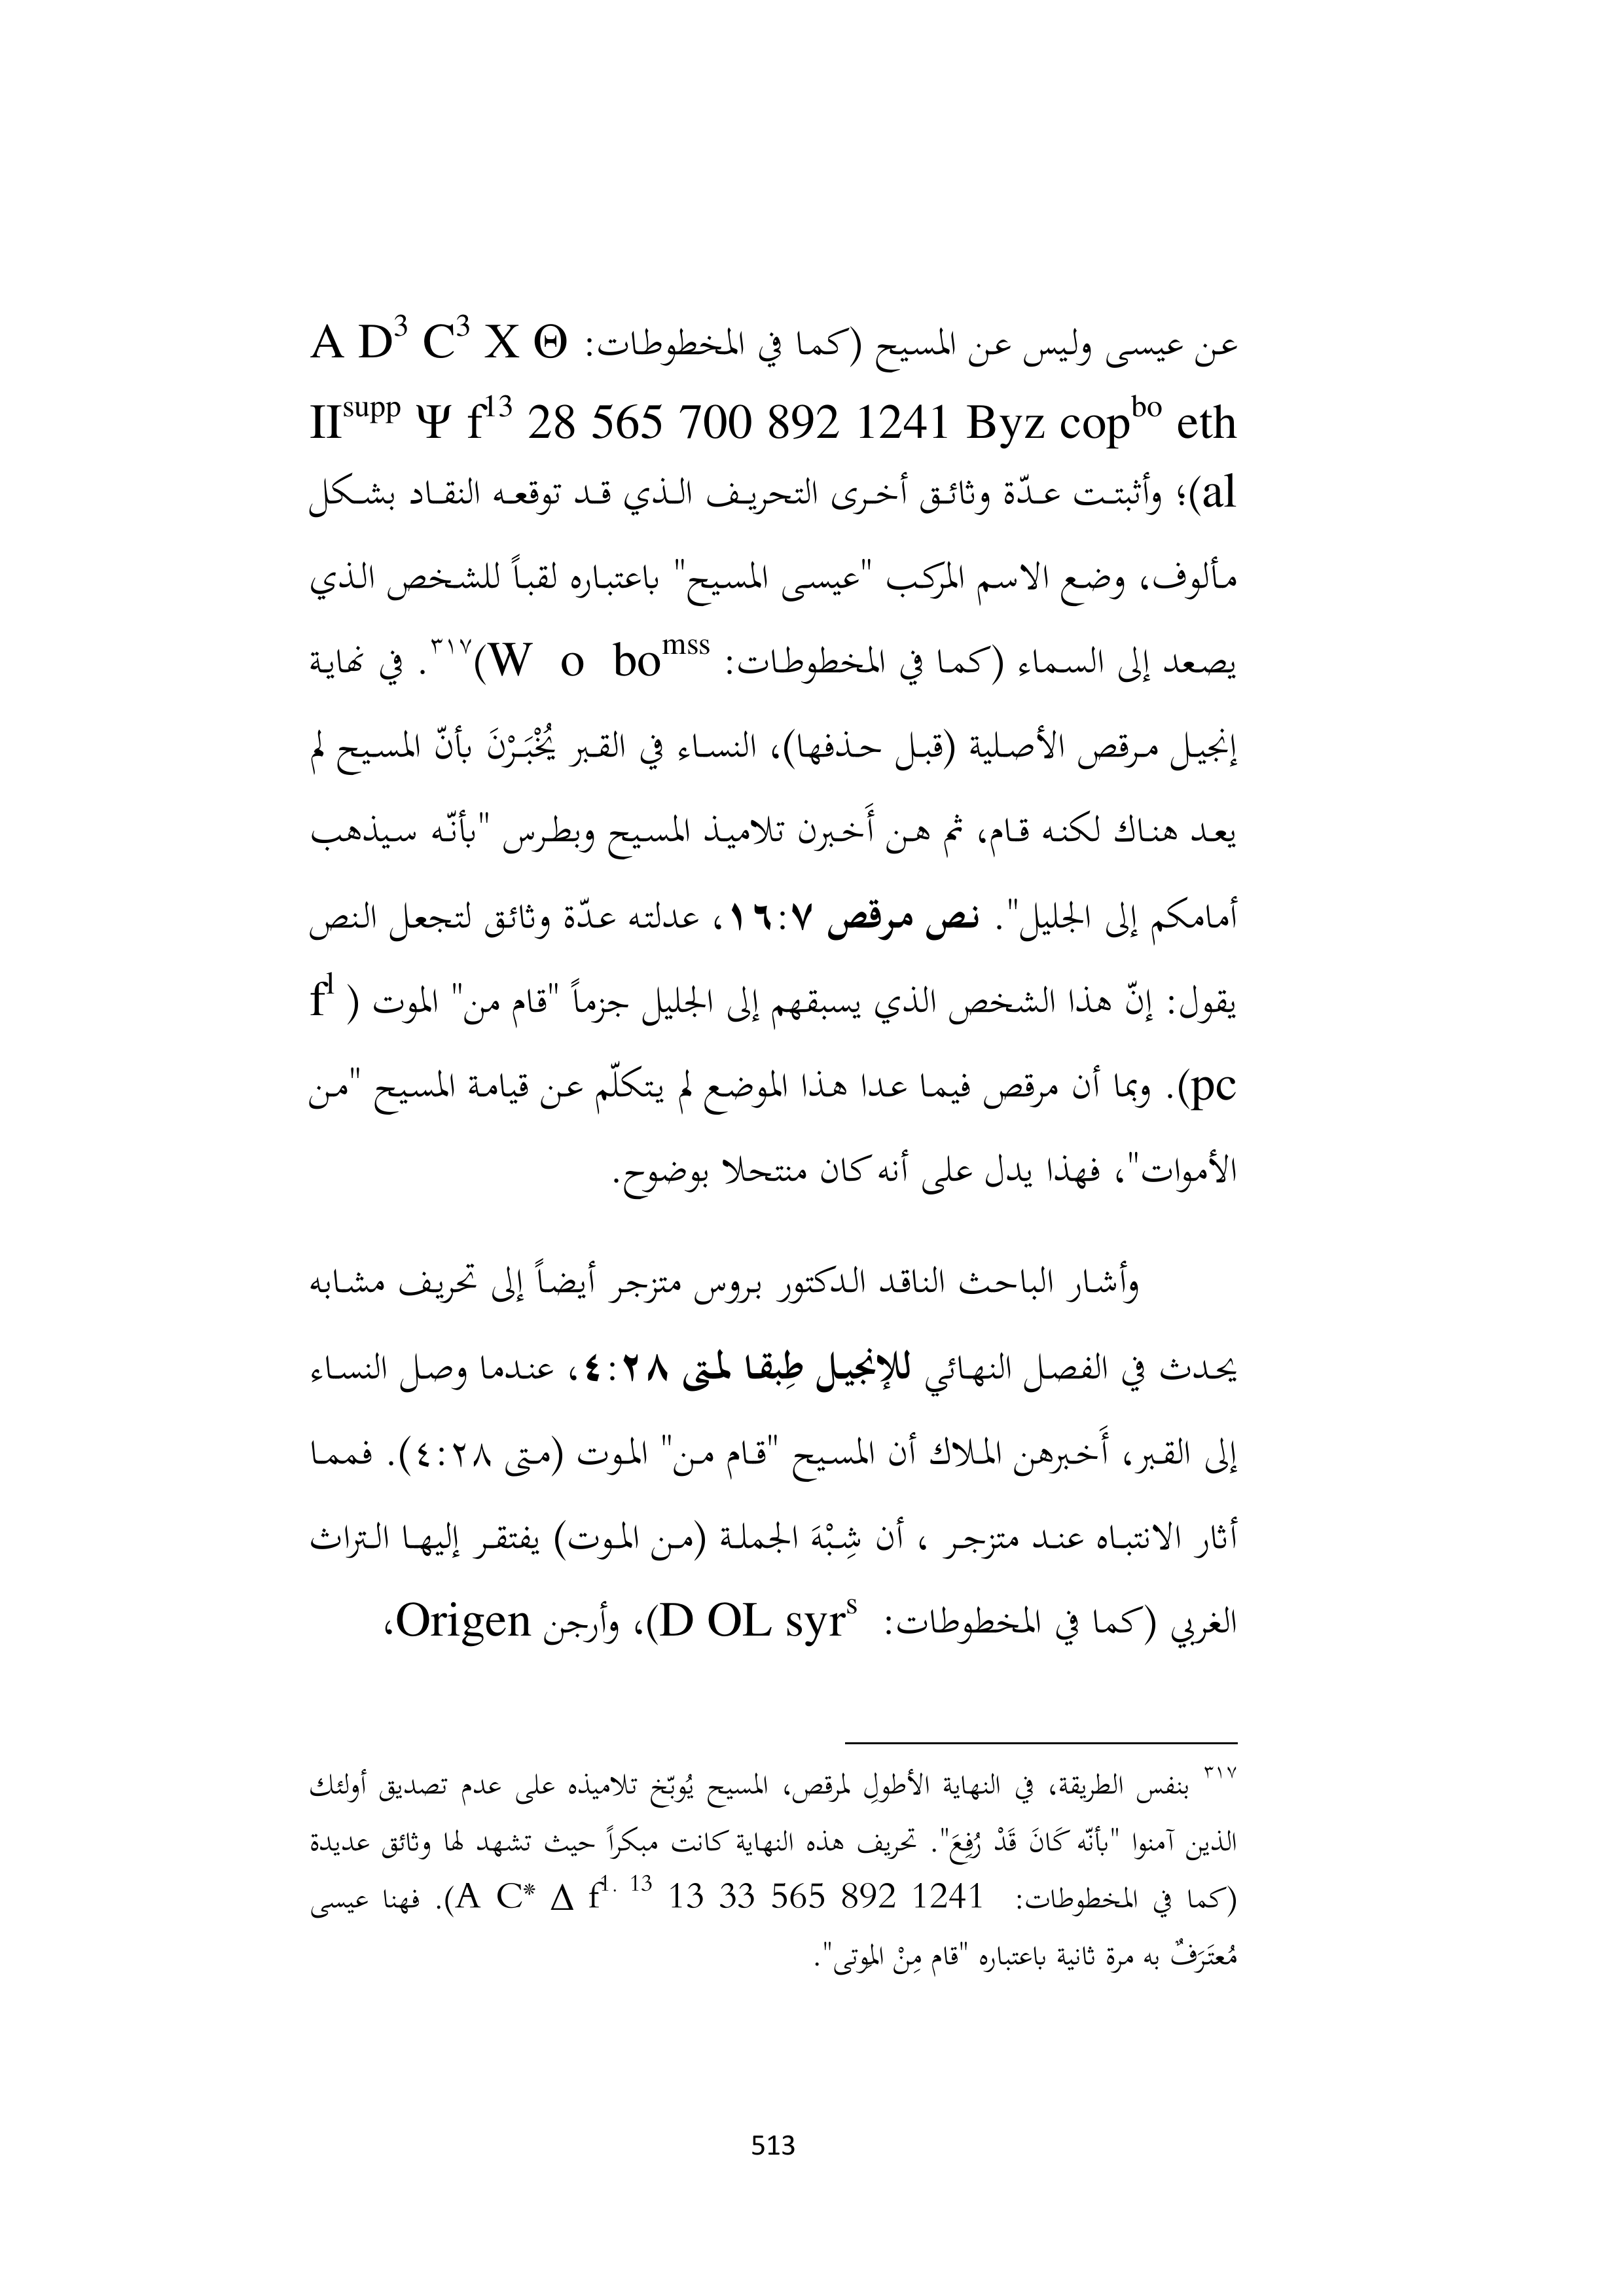 عن عيسى وليس عن المسيح (كما في المخطوطات: A D³ C³ X Θ
IIsupp Ψ f13 28 565 700 892 1241 Byz copbo eth
al)؛ وأثبتت عدّة وثائق أخرى التحريف الذي قد توقعه النقاد بشكل
مألوف، وضع الاسم المركب "عيسى المسيح" باعتباره لقباً للشخص الذي
يصعد إلى السماء (كما في المخطوطات: W o bomss)٣١٧. في نهاية
إنجيل مرقص الأصلية (قبل حذفها)، النساء في القبر يُخْبَرْنَ بأنّ المسيح لم
يعد هناك لكنه قام، ثم هن أَخبرن تلاميذ المسيح وبطرس "بأنّه سيذهب
أمامكم إلى الجليل". نص مرقص ١٦:٧، عدلته عدّة وثائق لتجعل النص
يقول: إنّ هذا الشخص الذي يسبقهم إلى الجليل جزماً "قام من" الموت ( f1
pc). وبما أن مرقص فيما عدا هذا الموضع لم يتكلّم عن قيامة المسيح "من
الأموات"، فهذا يدل على أنه كان منتحلا بوضوح.
وأشار الباحث الناقد الدكتور بروس متزجر أيضاً إلى تحريف مشابه
يحدث في الفصل النهائي للإنجيل طِبقا لمتى ٤:٢٨، عندما وصل النساء
إلى القبر، أَخبرهن الملاك أن المسيح "قام من" الموت (متى ٤:٢٨). فمما
أثار الانتباه عند متزجر ، أن شِبْهَ الجملة (من الموت) يفتقر إليها التراث
الغربي (كما في المخطوطات: D OL syrs)، وأرجن Origen،
٣١٧ بنفس الطريقة، في النهاية الأطولِ لمرقص، المسيح يُوبّخ تلاميذه على عدم تصديق أولئك
الذين آمنوا "بأنّه كَانَ قَدْ رُفِعَ". تحريف هذه النهاية كانت مبكراً حيث تشهد لها وثائق عديدة
(كما في المخطوطات: A C* Δ f1. 13 13 33 565 892 1241). فهنا عيسى
مُعتَرَفٌ به مرة ثانية باعتباره "قام مِنْ الموتى".
513